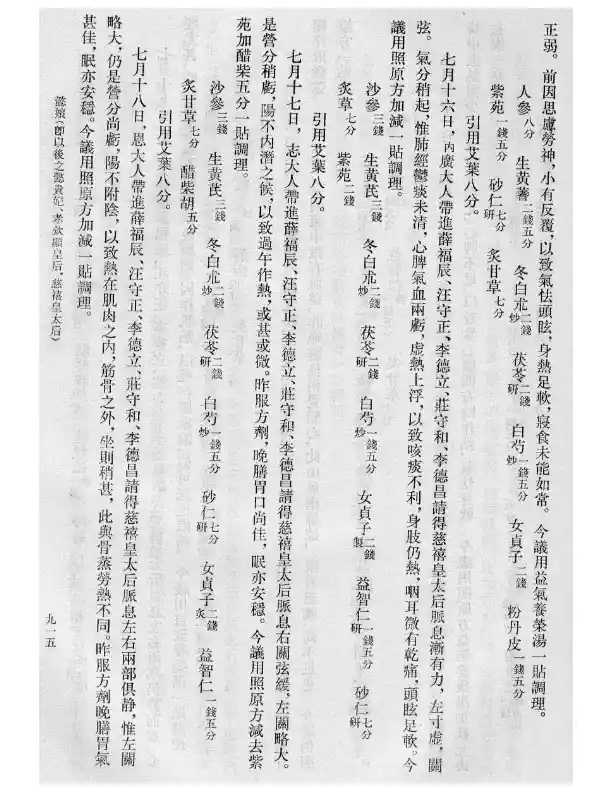 正弱。前因思慮勞神，小有反覆，以致氣怯頭眩，身熱足軟，寢食未能如常。今議用益氣養榮湯一貼調理。
人參八分 生黃蓍二錢五分 冬白朮二錢炒 茯苓二錢研 白芍一錢五分炒 女貞子二錢 粉丹皮一錢五分
紫苑一錢五分 砂仁七分研 炙甘草七分
引用艾葉八分。
七月十六日，內廣大人帶進薛福辰、汪守正、李德立、莊守和、李德昌請得慈禧皇太后脈息漸有力，左寸虛，關
弦。氣分稍起，惟肺經鬱痰未清，心脾氣血兩虧，虛熱上浮，以致咳痰不利，身肢仍熱，咽耳微有乾痛，頭眩足軟。今
議用照原方加減一貼調理。
沙參三錢 生黃芪三錢 冬白朮二錢炒 茯苓二錢研 白芍一錢五分炒 女貞子二錢製 益智仁一錢五分研 砂仁七分研
炙草七分 紫苑二錢
引用艾葉八分。
七月十七日，志大人帶進薛福辰、汪守正、李德立、莊守和、李德昌請得慈禧皇太后脈息右關弦緩，左關略大。
是營分稍虧，陽不內潛之候，以致過午作熱，或甚或微。昨服方劑，晚膳胃口尚佳，眠亦安穩。今議用照原方減去紫
苑加醋柴五分一貼調理。
沙參三錢 生黃芪三錢 冬白朮二錢炒 茯苓二錢研 白芍一錢五分炒 砂仁七分研 女貞子二錢炙 益智仁一錢五分
炙甘草七分 醋柴胡五分
引用艾葉八分。
七月十八日，恩大人帶進薛福辰、汪守正、李德立、莊守和、李德昌請得慈禧皇太后脈息左右兩部俱靜，惟左關
略大，仍是營分尚虧，陽不附陰，以致熱在肌肉之內，筋骨之外，坐則稍甚，此與骨蒸勞熱不同。昨服方劑晚膳胃氣
甚佳，眠亦安穩。今議用照原方加減一貼調理。
懿嬪（卽以後之懿貴妃、孝欽顯皇后、慈禧皇太后）
九一五